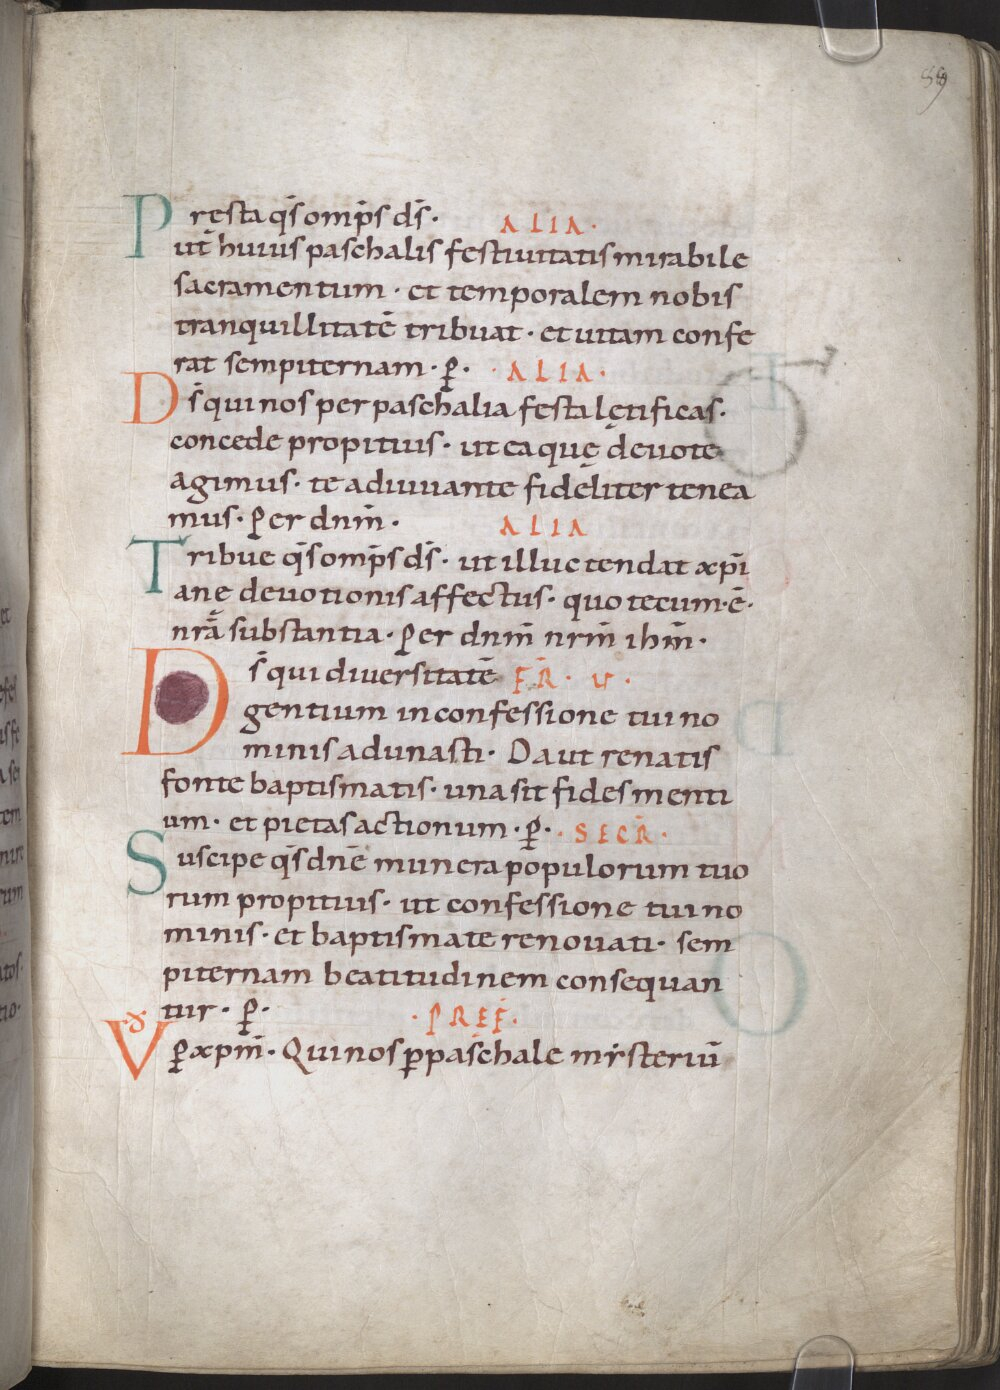 89
Pręsta q̄s omp̄s d̄s · ALIA ·
ut huius paschalis festiuitatis mirabile
sacramentum · et temporalem nobis
tranquillitatē tribuat · et uitam confe
rat sempiternam · p̄ · · ALIA ·
D̄s qui nos per paschalia festa lętificas ·
concede propitius · ut ea quę deuote
agimus · te adiuuante fideliter tenea
mus · Per dnm̄ · ALIA
Tribue q̄s omp̄s d̄s · ut illuc tendat xp̄i
anę deuotionis affectus · quo tecum · ē ·
nrā substantia · Per dnm̄ nrm̄ ihm̄ ·
D̄s qui diuersitatē FR̄ · V ·
gentium in confessione tui no
minis adunasti · Da ut renatis
fonte baptismatis · una sit fides menti
um · et pietas actionum · p̄ · · SECR̄ ·
Suscipe q̄s dnē munera populorum tuo
rum propitius · ut confessione tui no
minis · et baptismate renouati · sem
piternam beatitudinem consequan
tur · p̄ · · PREF ·
VD p̄ xpm̄ · Qui nos p̄ paschale mẏsteriū